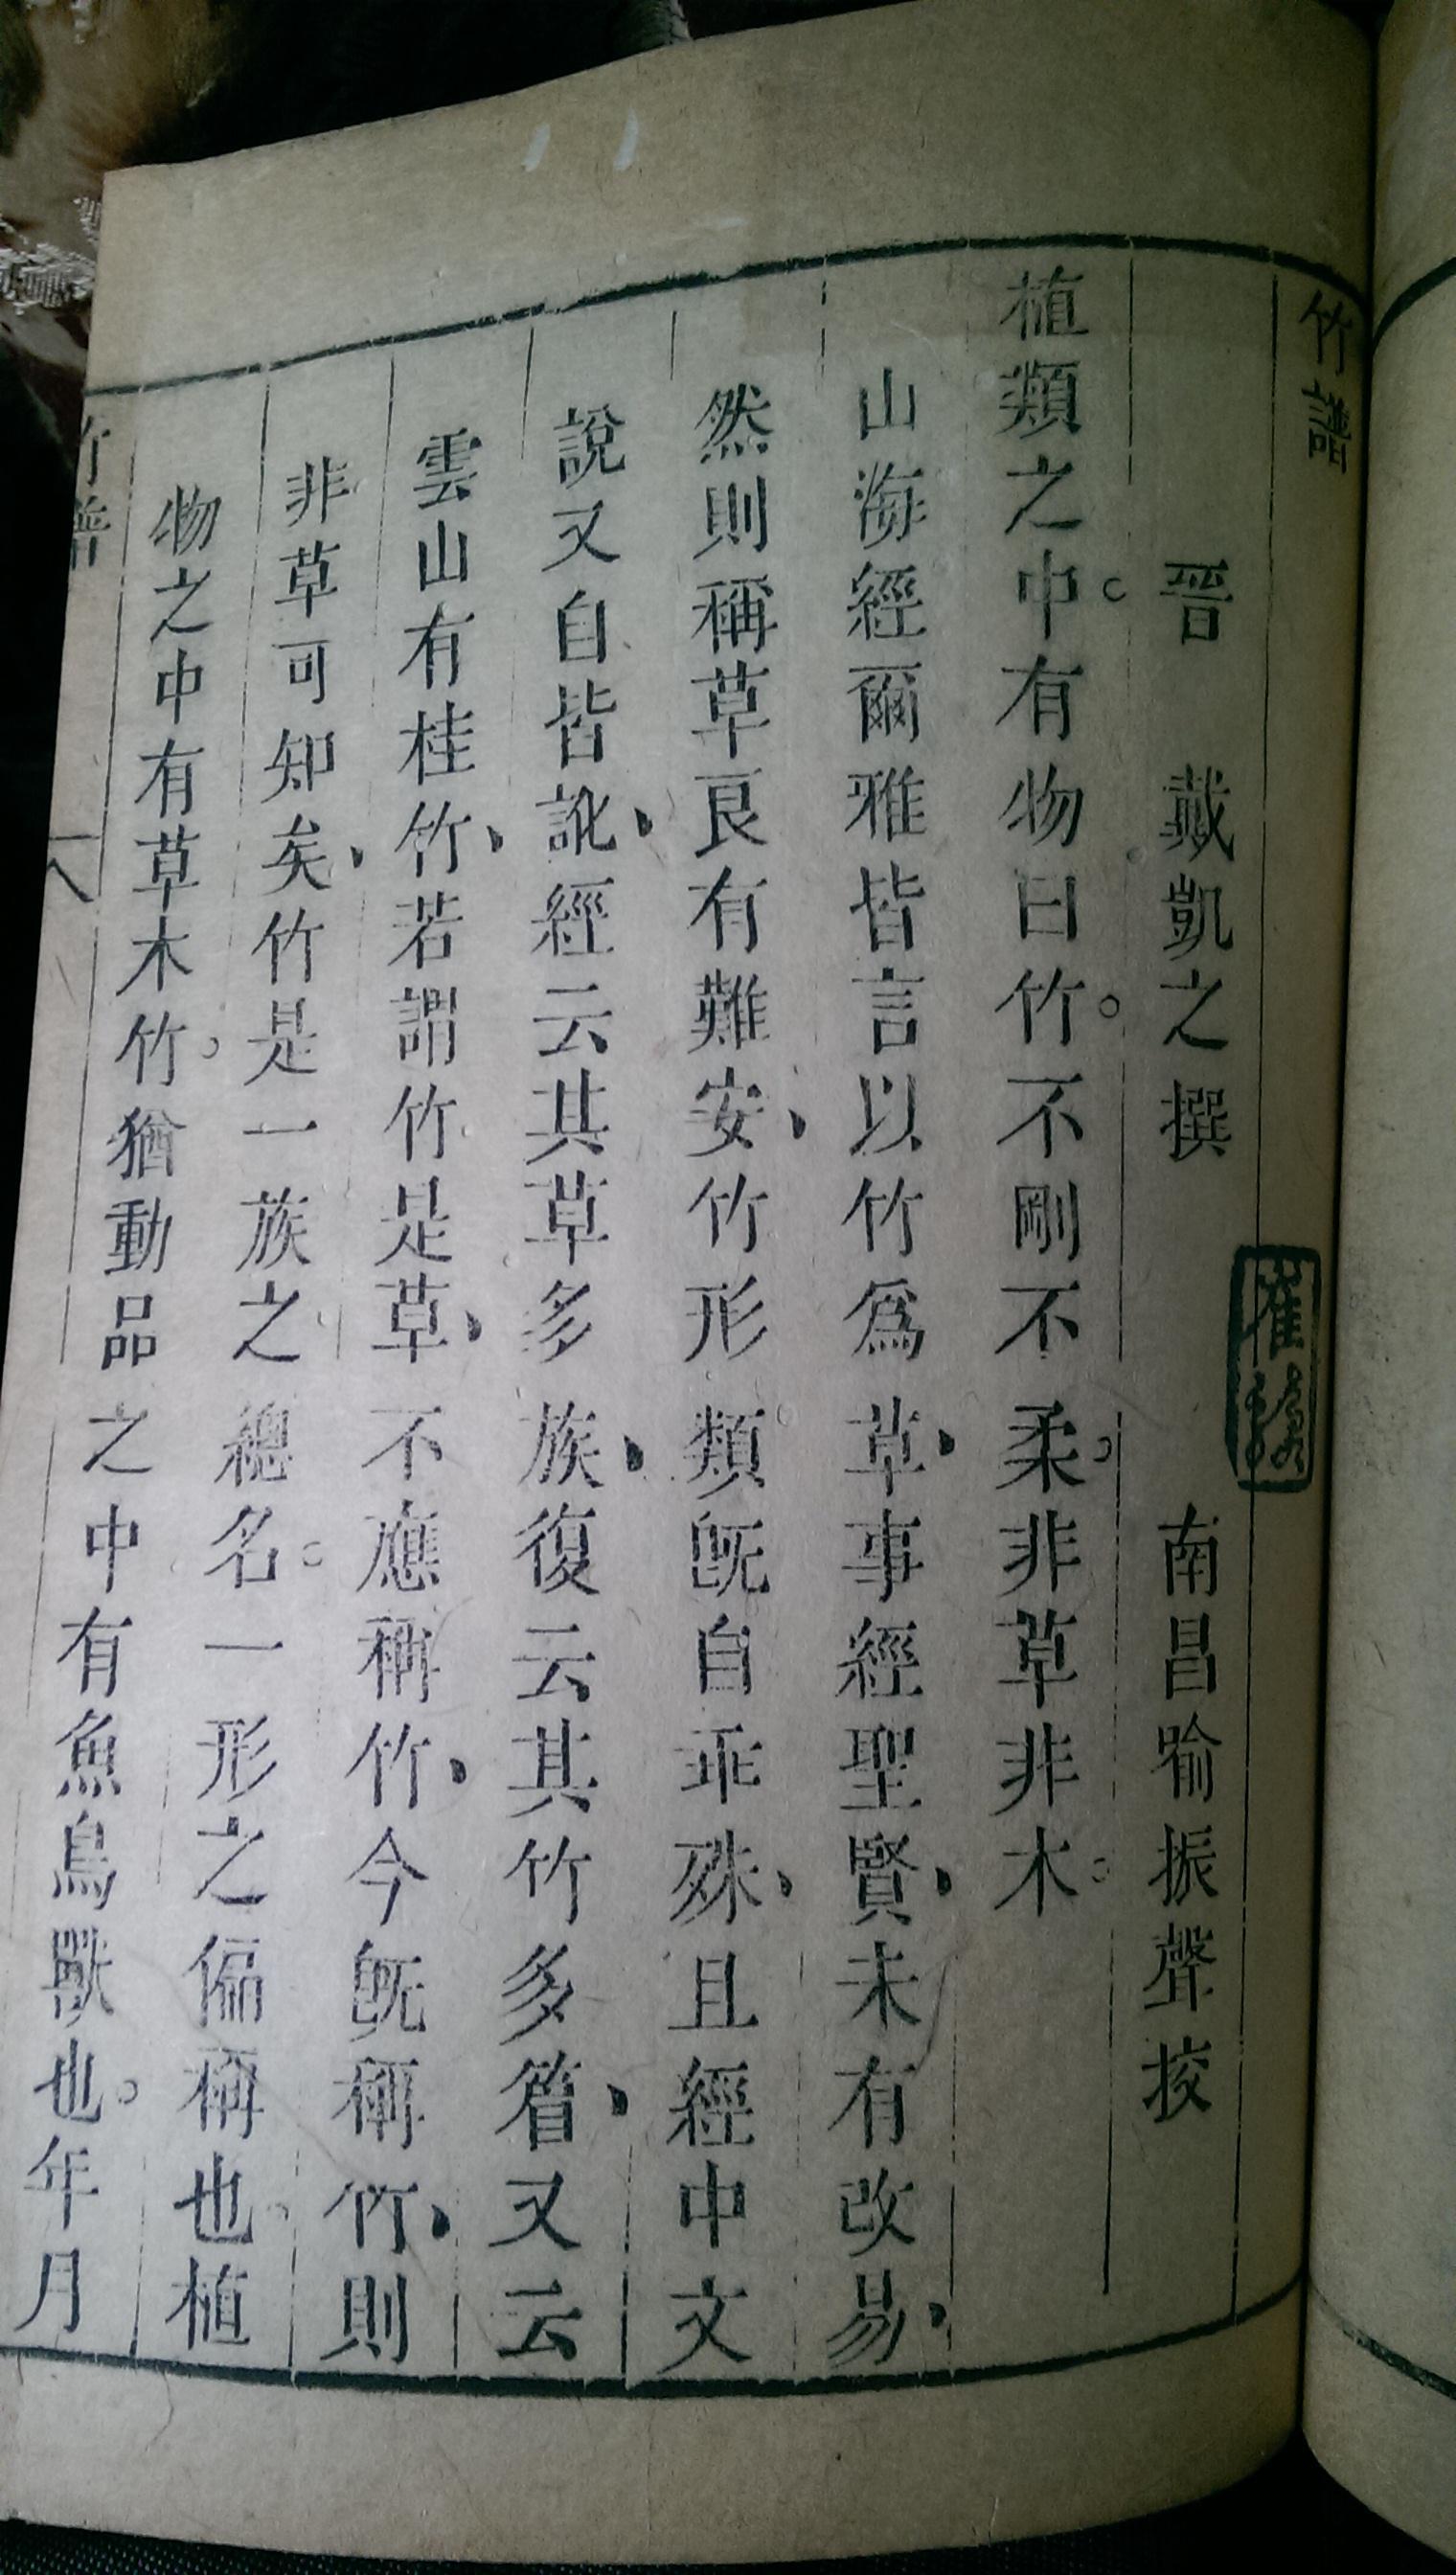 竹譜
晉　戴凱之撰　南昌喻振聲挍
植類之中有物曰竹不剛不柔非草非木
山海經爾雅皆言以竹爲草事經聖賢未有改易
然則稱草良有難安竹形類旣自乖殊且經中文
說又自皆訛經云其草多族復云其竹多篃又云
雲山有桂竹若謂竹是草不應稱竹今旣稱竹則
非草可知矣竹是一族之總名一形之偏稱也植
物之中有草木竹猶動品之中有魚鳥獸也年月
竹譜
一